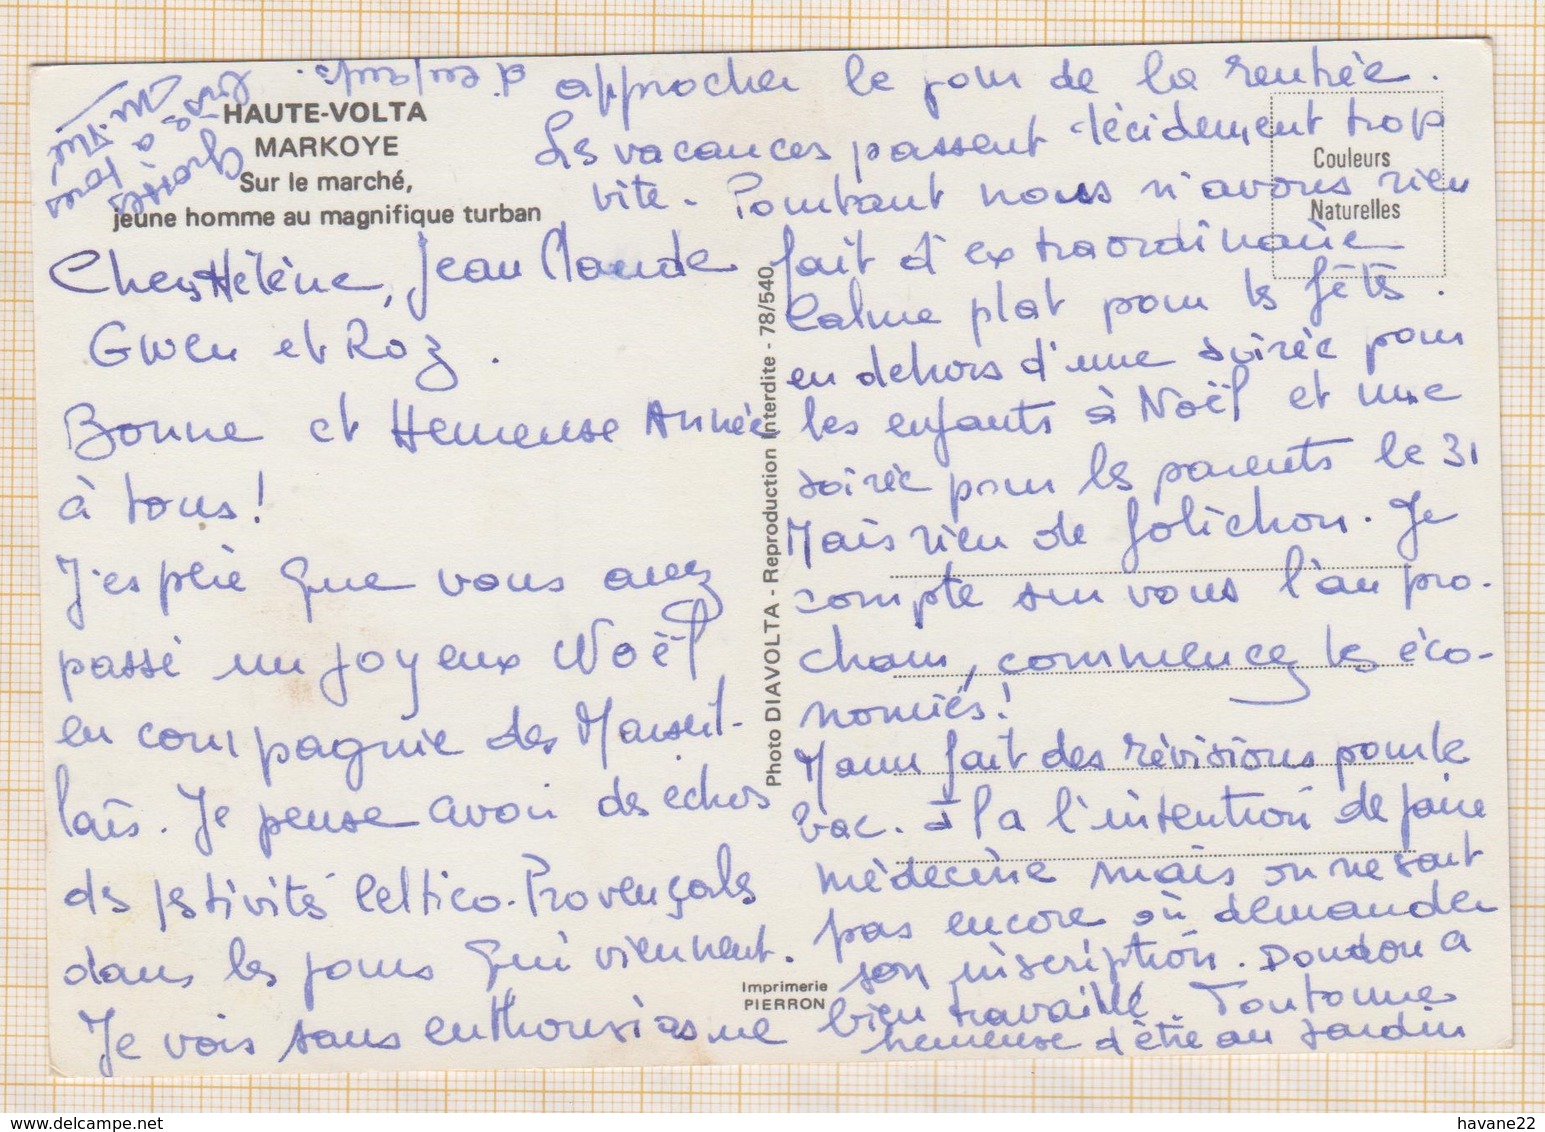 HAUTE-VOLTA
MARKOYE
Sur le marché,
jeune homme au magnifique turban
Chers Hélène, Jean Claude
Gwen et Roz.
Bonne et Heureuse Année
à tous!
J'espère que vous avez
passé un joyeux Noël
en compagnie des Marseil-
lais. Je pense avoir des échos
des festivités Celtico-Provençales
dans les jours qui viennent.
Je vois sans enthousiasme
approcher le jour de la rentrée.
Les vacances passent décidement trop
vite. Pourtant nous n'avons rien
fait d'extraordinaire
Calme plat pour les fêtes.
en dehors d'une soirée pour
les enfants à Noël et une
soirée pour les parents le 31
Mais rien de folichon. Je
compte sur vous l'an pro-
chain, commencez les éco-
nomies!
Yann fait des révisions pour le
bac. Il a l'intention de faire
médecine mais on ne sait
pas encore où demander
son inscription. Doudou a
bien travaillé Toutoune
heureuse d'être au jardin
d'enfants.
Grosses bises
à
Couleurs
Naturelles
Photo DIAVOLTA - Reproduction Interdite - 78/540
Imprimerie
PIERRON
havane22